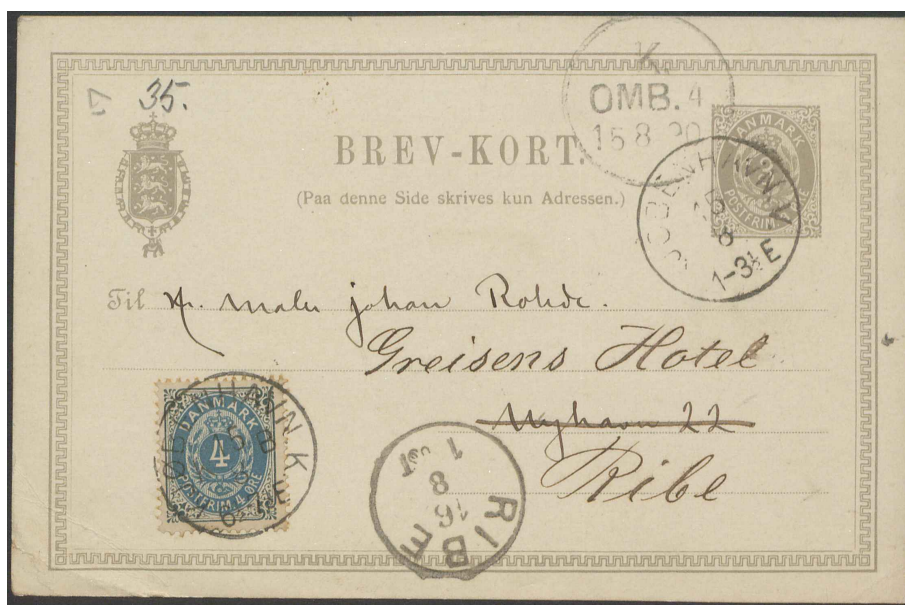 35.
K.
OMB. 4
15 8 90
BREV-KORT.
(Paa denne Side skrives kun Adressen.)
DANMARK
POSTFRIM ØRE
KJØBENHAVN V
15
8
1-3½ E
Til Hr. Maler Johan Rohde.
Greisens Hotel
Nyhavn 22
Ribe
DANMARK
4
POSTFRIM. ØRE
HAVN K
RIBE
16
8
1